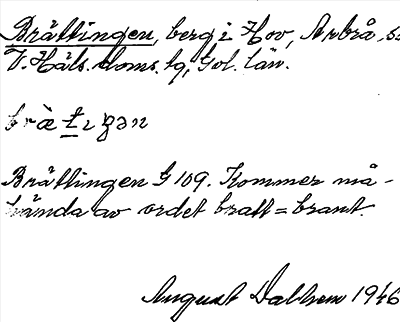 Brättingen, berg i Hov, Arbrå, s
V. Häls. doms. tg, Gvl. län.
Brättingen G 109. Kommer må-
hända av ordet bratt = brant.
August Dalhem 1946